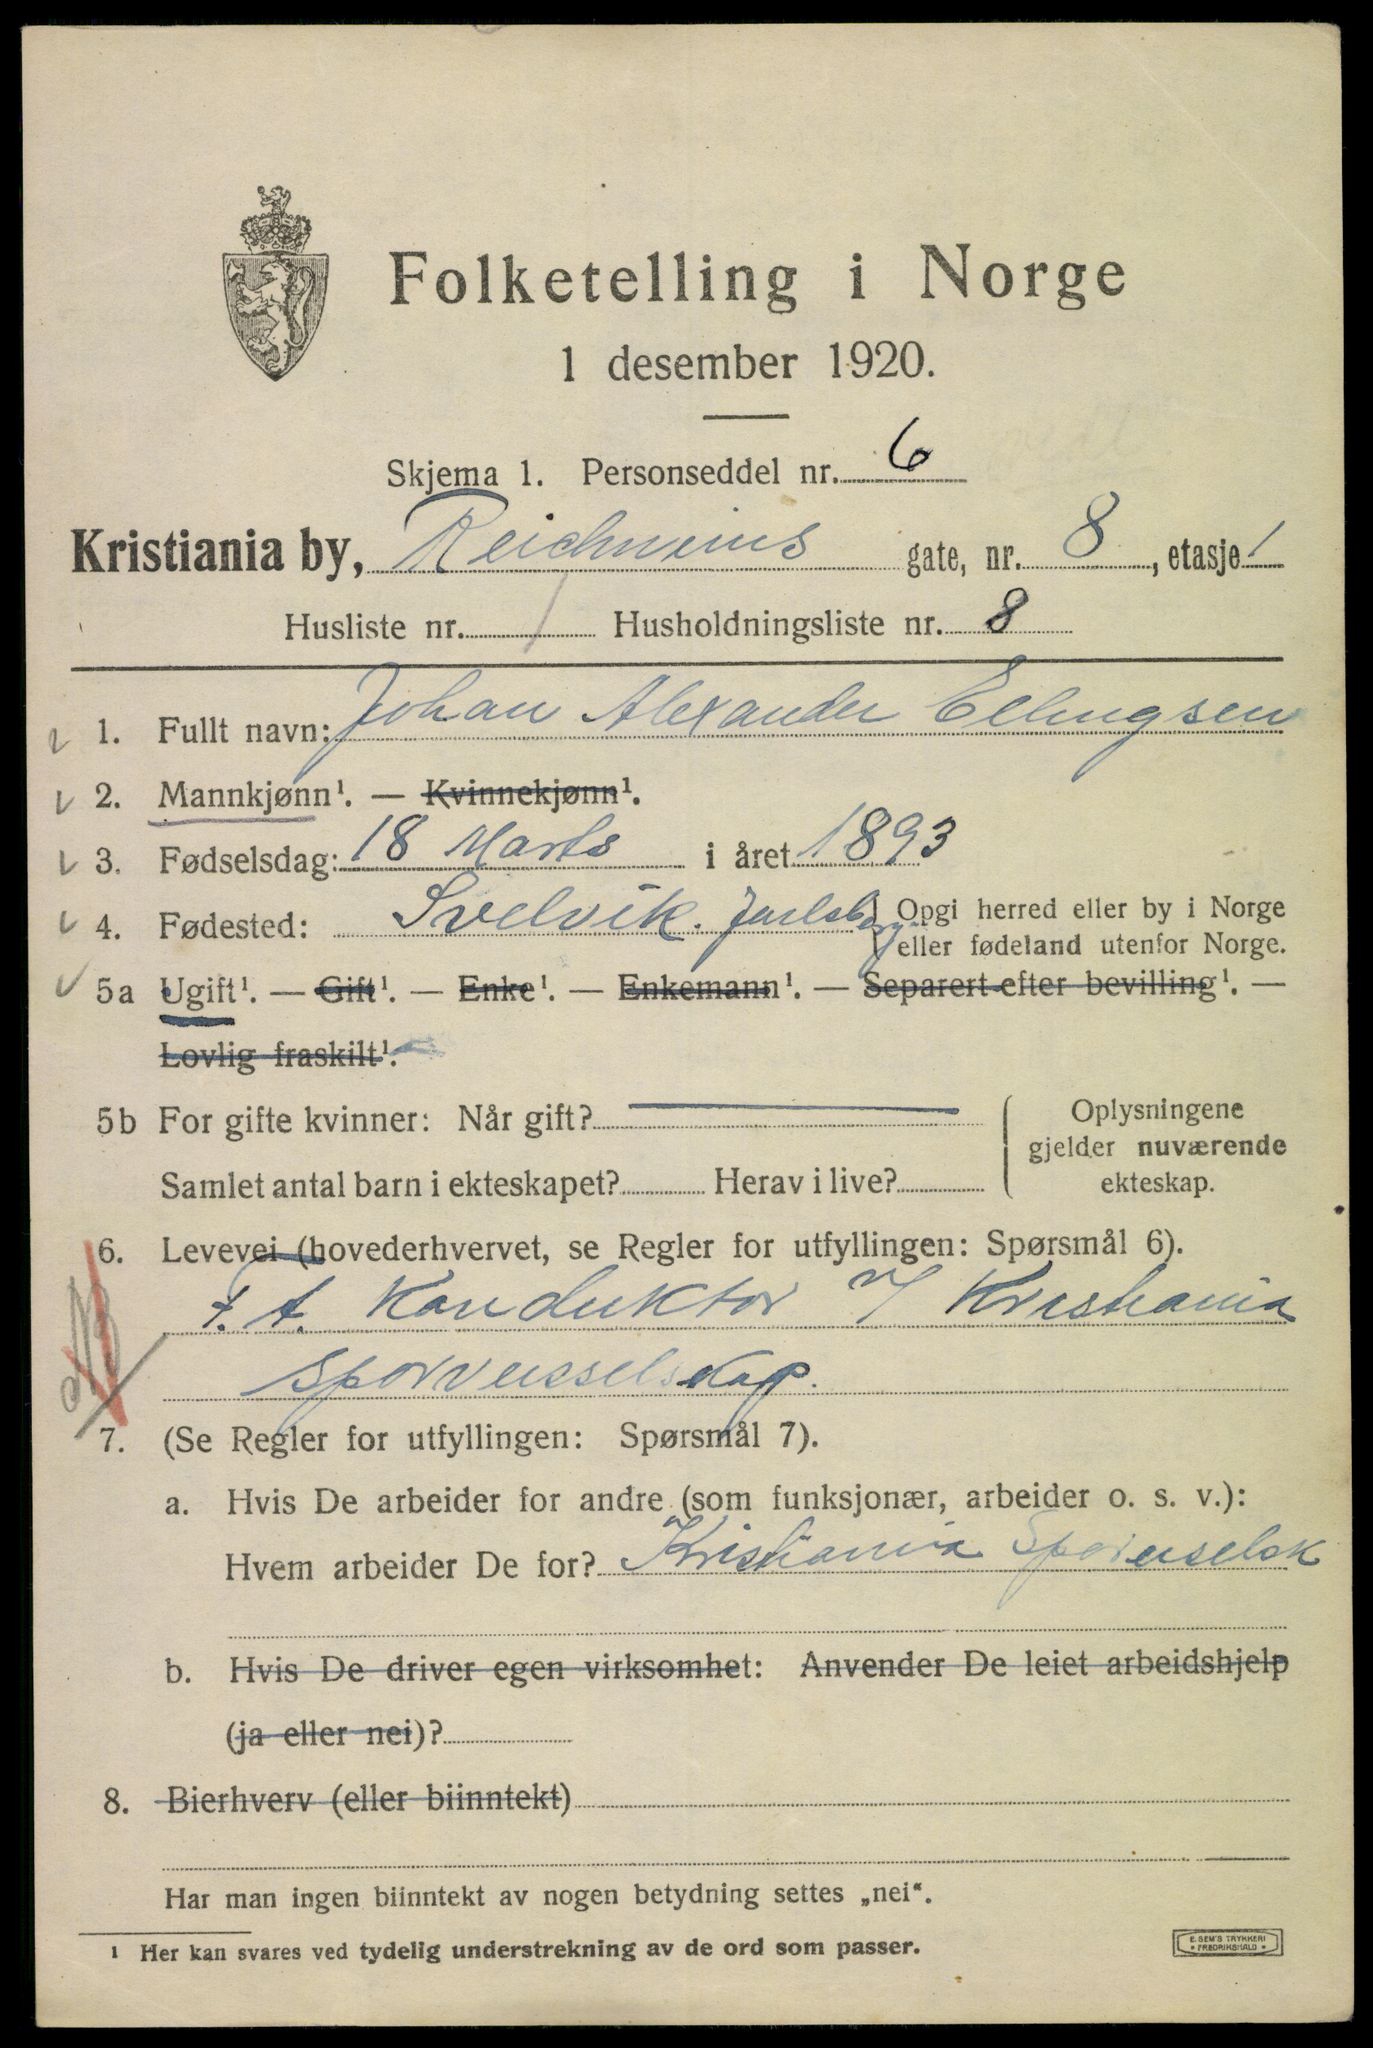 Folketelling i Norge
1 desember 1920.
Skjema 1. Personseddel nr. 6
Kristiania by, Reichweins gate, nr. 8, etasje 1
Husliste nr. 1 Husholdningsliste nr. 8
1. Fullt navn: Johan Alexander Ellingsen
2. Mannkjønn¹. — Kvinnekjønn¹.
3. Fødselsdag: 18 Marts i året 1893
4. Fødested: Svelvik. Jarlsberg Opgi herred eller by i Norge
eller fødeland utenfor Norge.
5a Ugift¹. — Gift¹. — Enke¹. — Enkemann¹. — Separert efter bevilling¹. —
Lovlig fraskilt¹.
5b For gifte kvinner: Når gift?
Samlet antal barn i ekteskapet? Herav i live?
Oplysningene
gjelder nuværende
ekteskap.
6. Levevei (hovederhvervet, se Regler for utfyllingen: Spørsmål 6).
F. t. Konduktor v/ Kristiania
Sporveisselskap.
7. (Se Regler for utfyllingen: Spørsmål 7).
a. Hvis De arbeider for andre (som funksjonær, arbeider o. s. v.):
Hvem arbeider De for? Kristiania Sporveiselsk
b. Hvis De driver egen virksomhet: Anvender De leiet arbeidshjelp
(ja eller nei)?
8. Bierhverv (eller biinntekt)
Har man ingen biinntekt av nogen betydning settes „nei“.
¹ Her kan svares ved tydelig understrekning av de ord som passer.
E. SEM'S TRYKKERI
• FREDRIKSHALD •